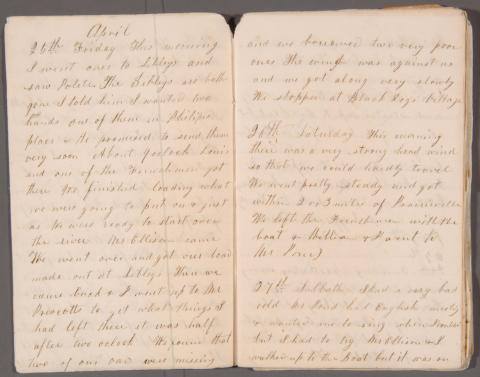 April
26th Friday This morning
I went over to Sibleys and
saw Potete. The Sibleys are both
gone I told him I wanted two
hands one of them in Philips
place & He promised to send them
very soon About 9 oclock Louis
and one of the Frenchmen got
there We finished loading what
we were going to put on & just
as We were ready to start over
the river Mr Ellison came
We went over and got our load
made out at Sibleys Then we
came back & I went up to Mr
Prescotts to get what things I
had left there it was half
after two oclock We found that
two of our oars were missing
and we borrowed two very poor
ones The wind was against us
and we got along very slowly
We stopped at Black Dogs Village
26th Saturday This morning
there was a very strong head wind
so that we could hardly travel
We went pretty steady and got
within 2 or 3 miles of Prairieville
We left the Frenchmen with the
boat & & I went to
Mr Pond)
27th Sabbath I had a very bad
cold Mr Pond had English meeting
& wanted me to sing which I
but I had to try Mr Ellison & I
walked up to the Boat but it was on